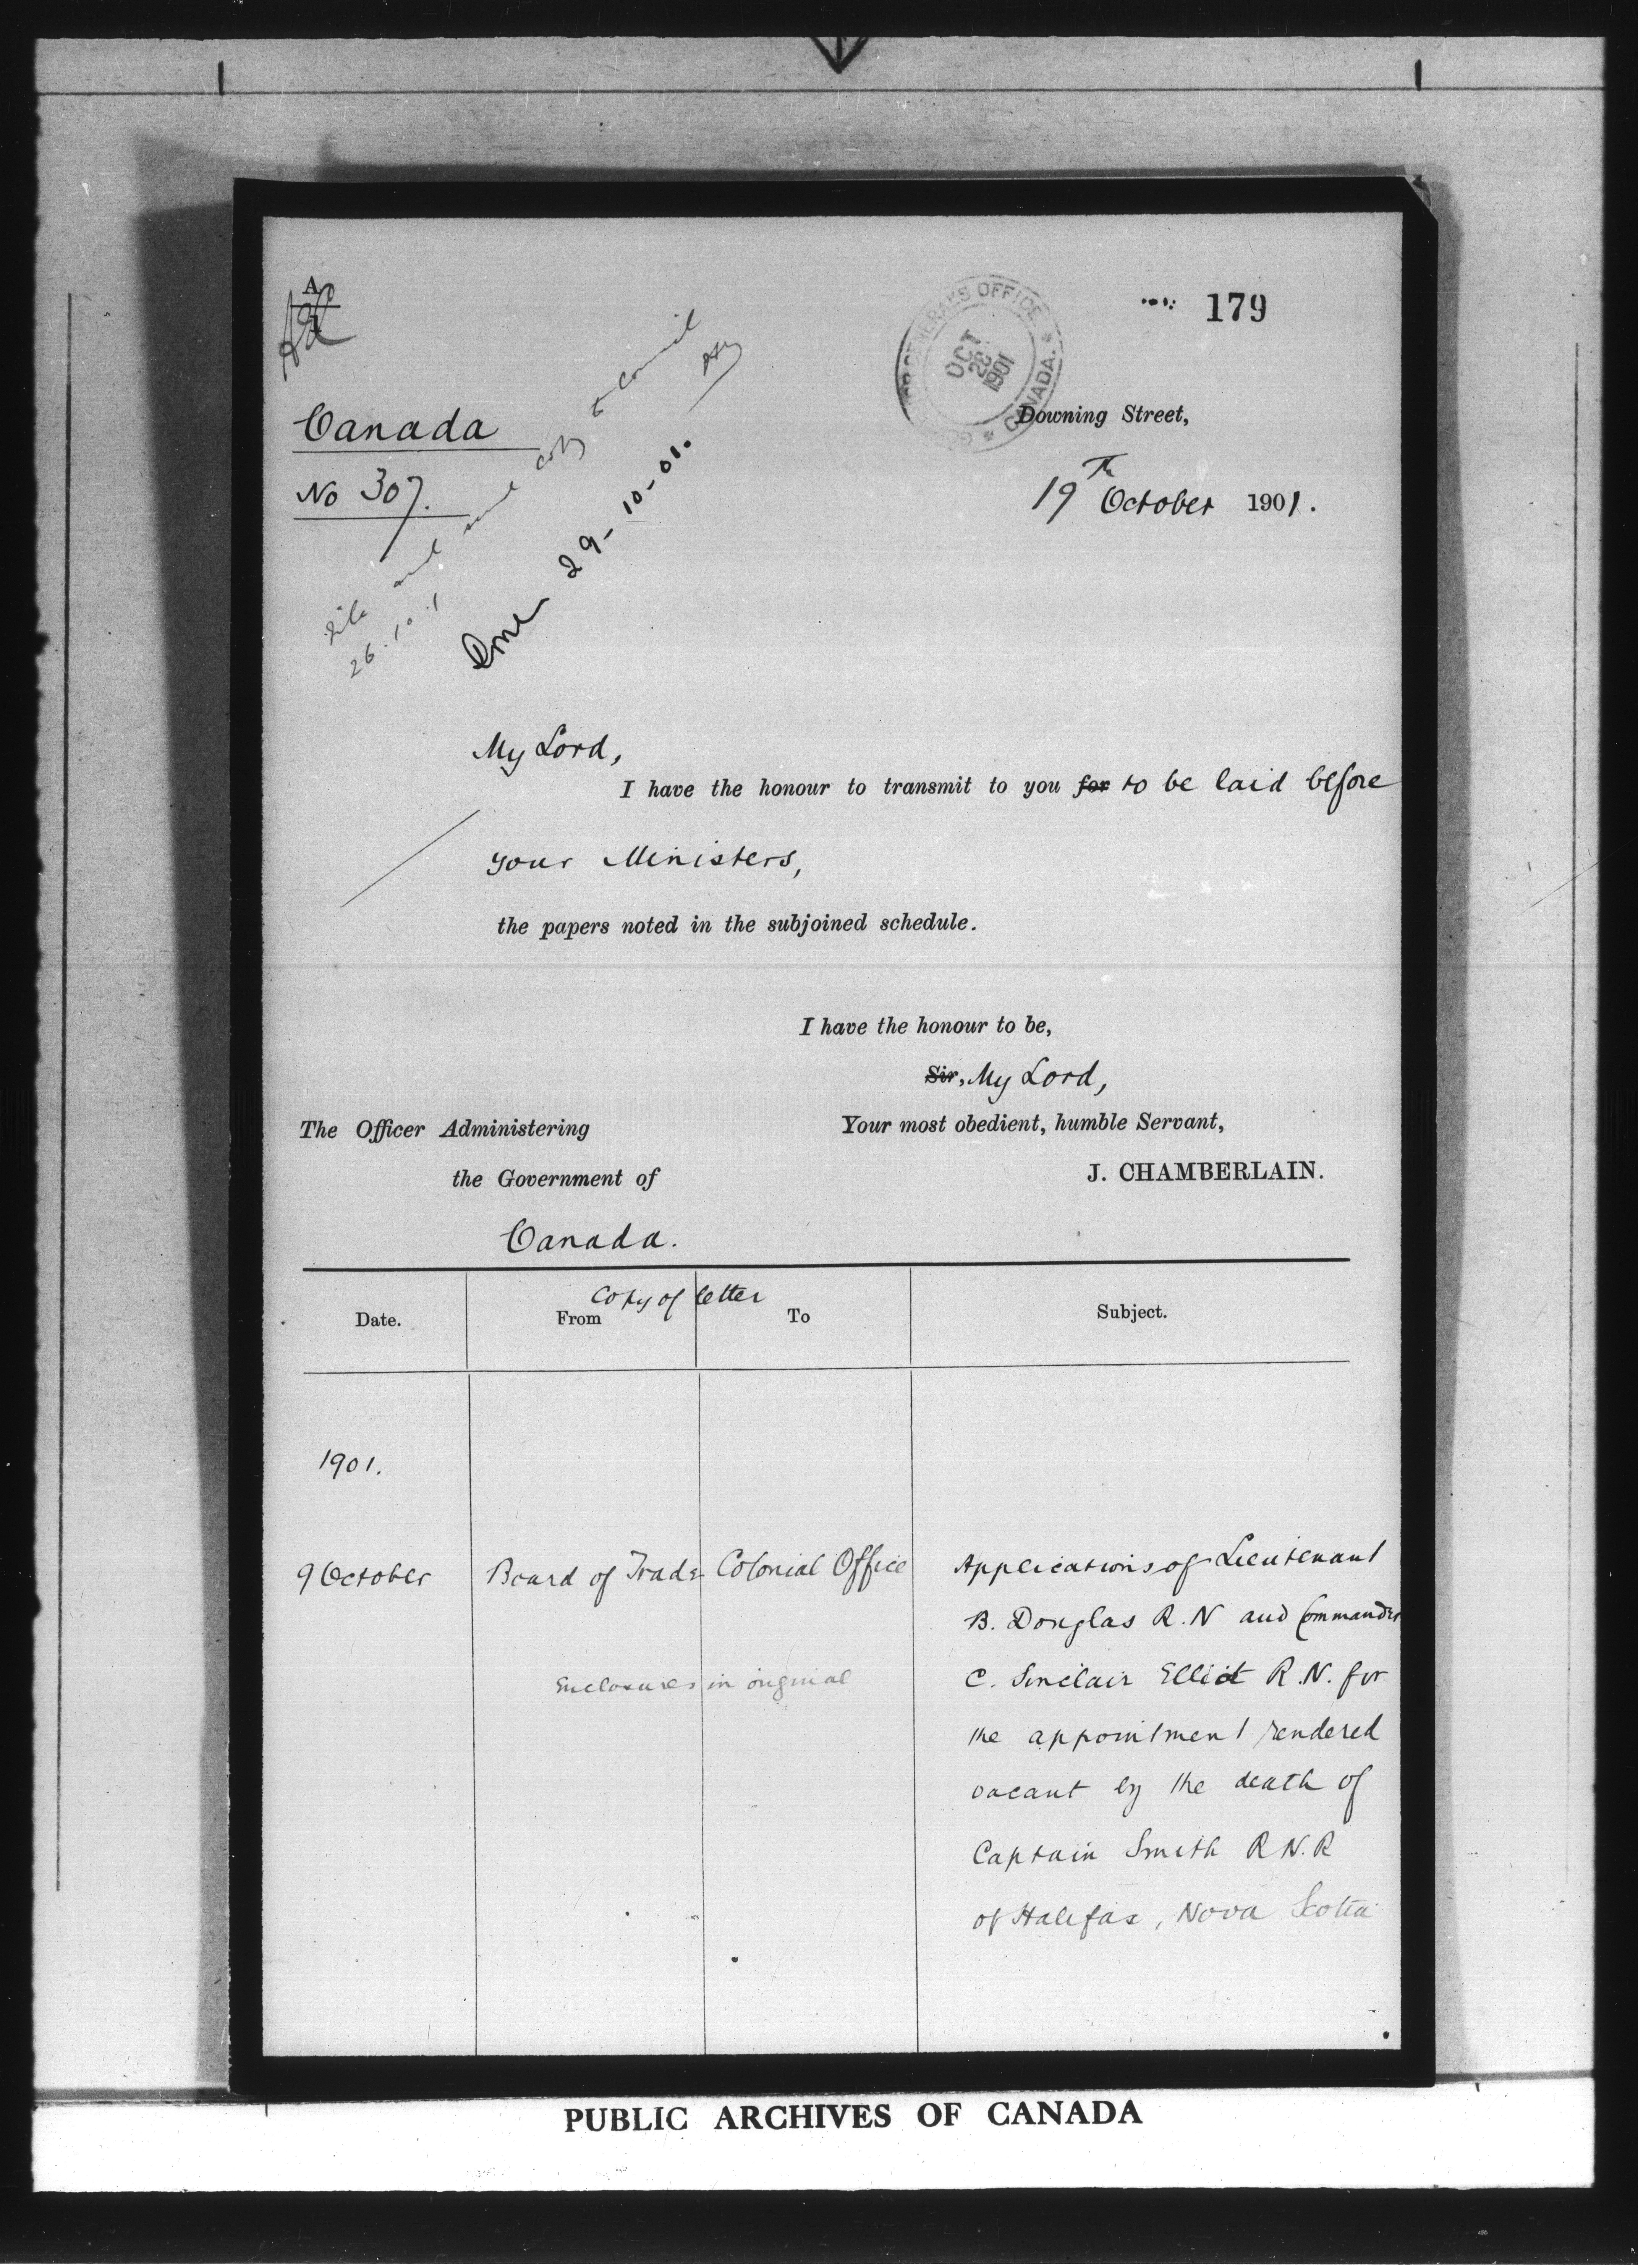 A
179
GOVERNOR GENERAL'S OFFICE * CANADA. *
OCT
26
1901
Canada
Downing Street,
No 307.
19th October 1901.
file and send copy to Council
26.10.1
Done 29-10-01.
My Lord,
I have the honour to transmit to you for to be laid before
your Ministers,
the papers noted in the subjoined schedule.
I have the honour to be,
Sir, My Lord,
Your most obedient, humble Servant,
J. CHAMBERLAIN.
The Officer Administering
the Government of
Canada.
Copy of letter
Date. From To Subject.
1901.
9 October Board of Trade Colonial Office Applications of Lieutenant
B. Douglas R.N and Commander
Enclosures in original
C. Sinclair Elliot R.N. for
the appointment rendered
vacant by the death of
Captain Smith R N.R
of Halifax, Nova Scotia
PUBLIC ARCHIVES OF CANADA